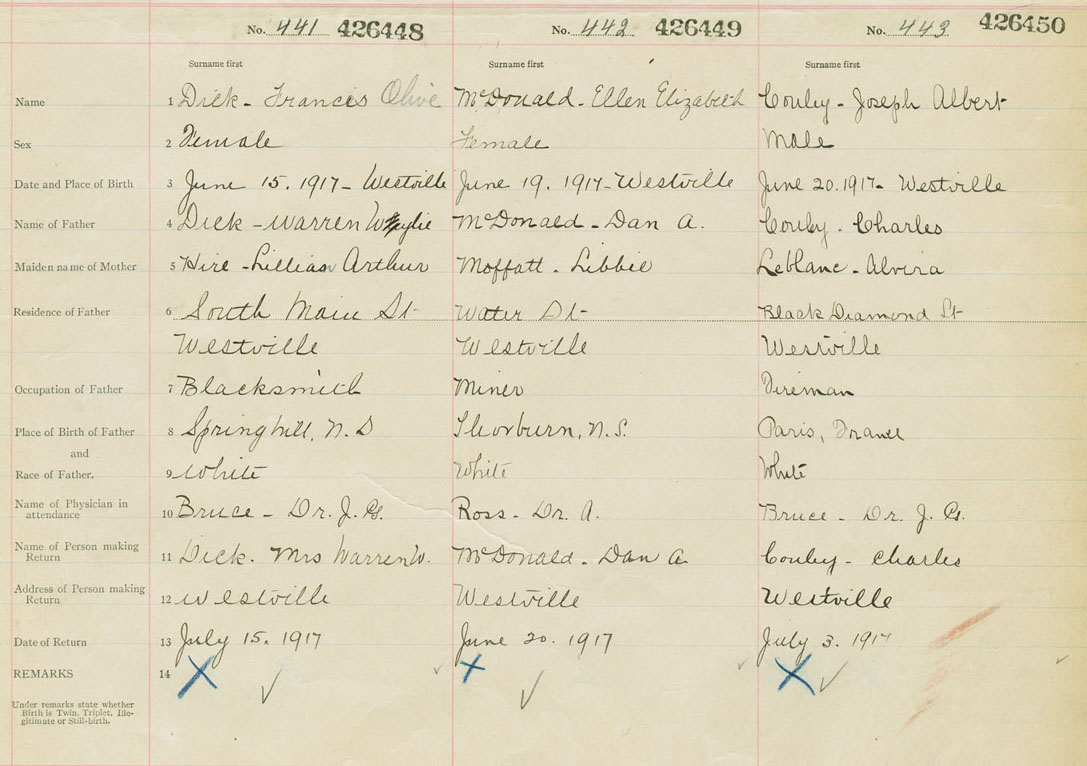 No. 441 426448 No. 442 426449 No. 443 426450
Surname first Surname first Surname first
Name 1 Dick - Francis Olive McDonald - Ellen Elizabeth Couley - Joseph Albert
Sex 2 Female Female Male
Date and Place of Birth 3 June 15. 1917 - Westville June 19. 1917 - Westville June 20. 1917 - Westville
Name of Father 4 Dick - Warren Wylie McDonald - Dan A. Couley - Charles
Maiden name of Mother 5 Hire - Lillian Arthur Moffatt - Libbie Leblanc - Alvira
Residence of Father 6 South Main St Water St Black Diamond St
Westville Westville Westville
Occupation of Father 7 Blacksmith Miner Fireman
Place of Birth of Father 8 Springhill, N.S Thorburn, N.S. Paris, France
and
Race of Father. 9 White White White
Name of Physician in
attendance 10 Bruce - Dr. J. G. Ross - Dr. A. Bruce - Dr. J. G.
Name of Person making
Return 11 Dick. Mrs Warren W. McDonald - Dan A Couley - Charles
Address of Person making
Return 12 Westville Westville Westville
Date of Return 13 July 15. 1917 June 20. 1917 July 3. 1917
REMARKS 14
Under remarks state whether
Birth is Twin, Triplet, Ille-
gitimate or Still-birth.